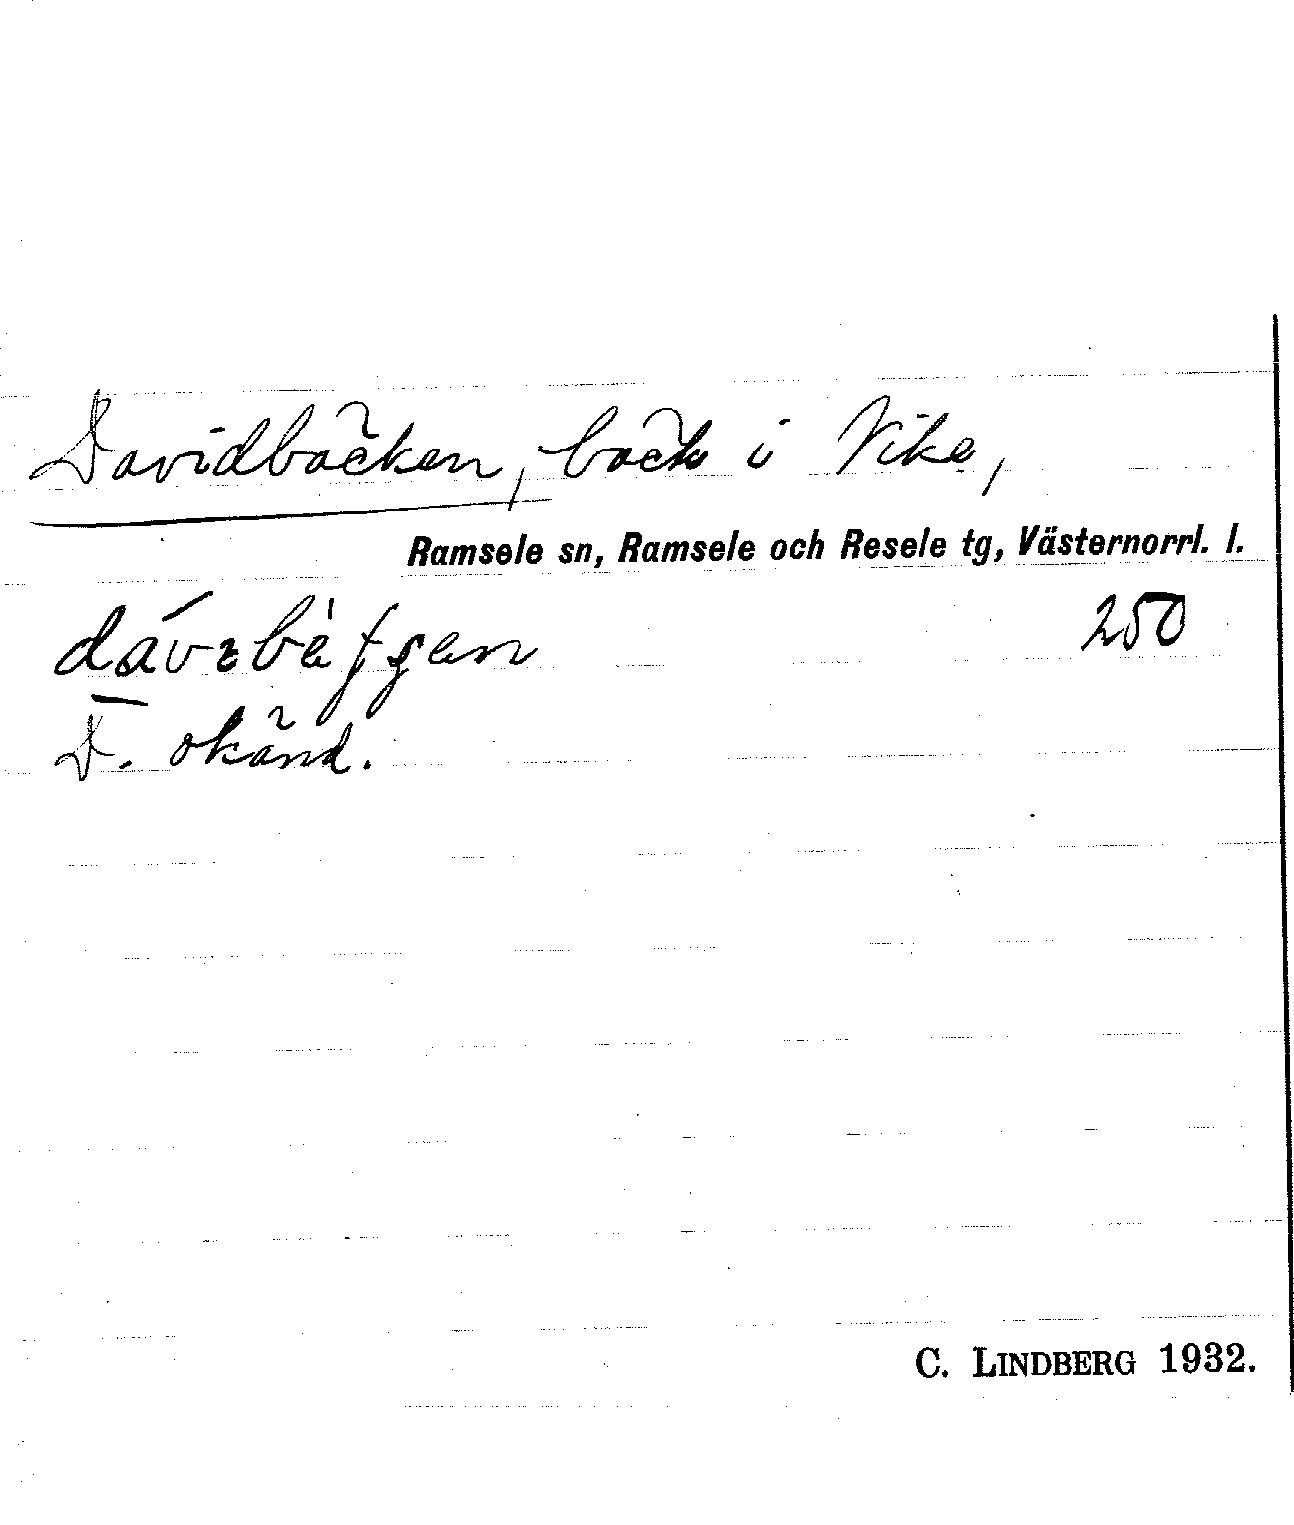 Davidbäcken, bäck i Vike,
Ramsele sn, Ramsele och Resele tg, Västernorrl. l.
250
D. okänd.
C. LINDBERG 1932.